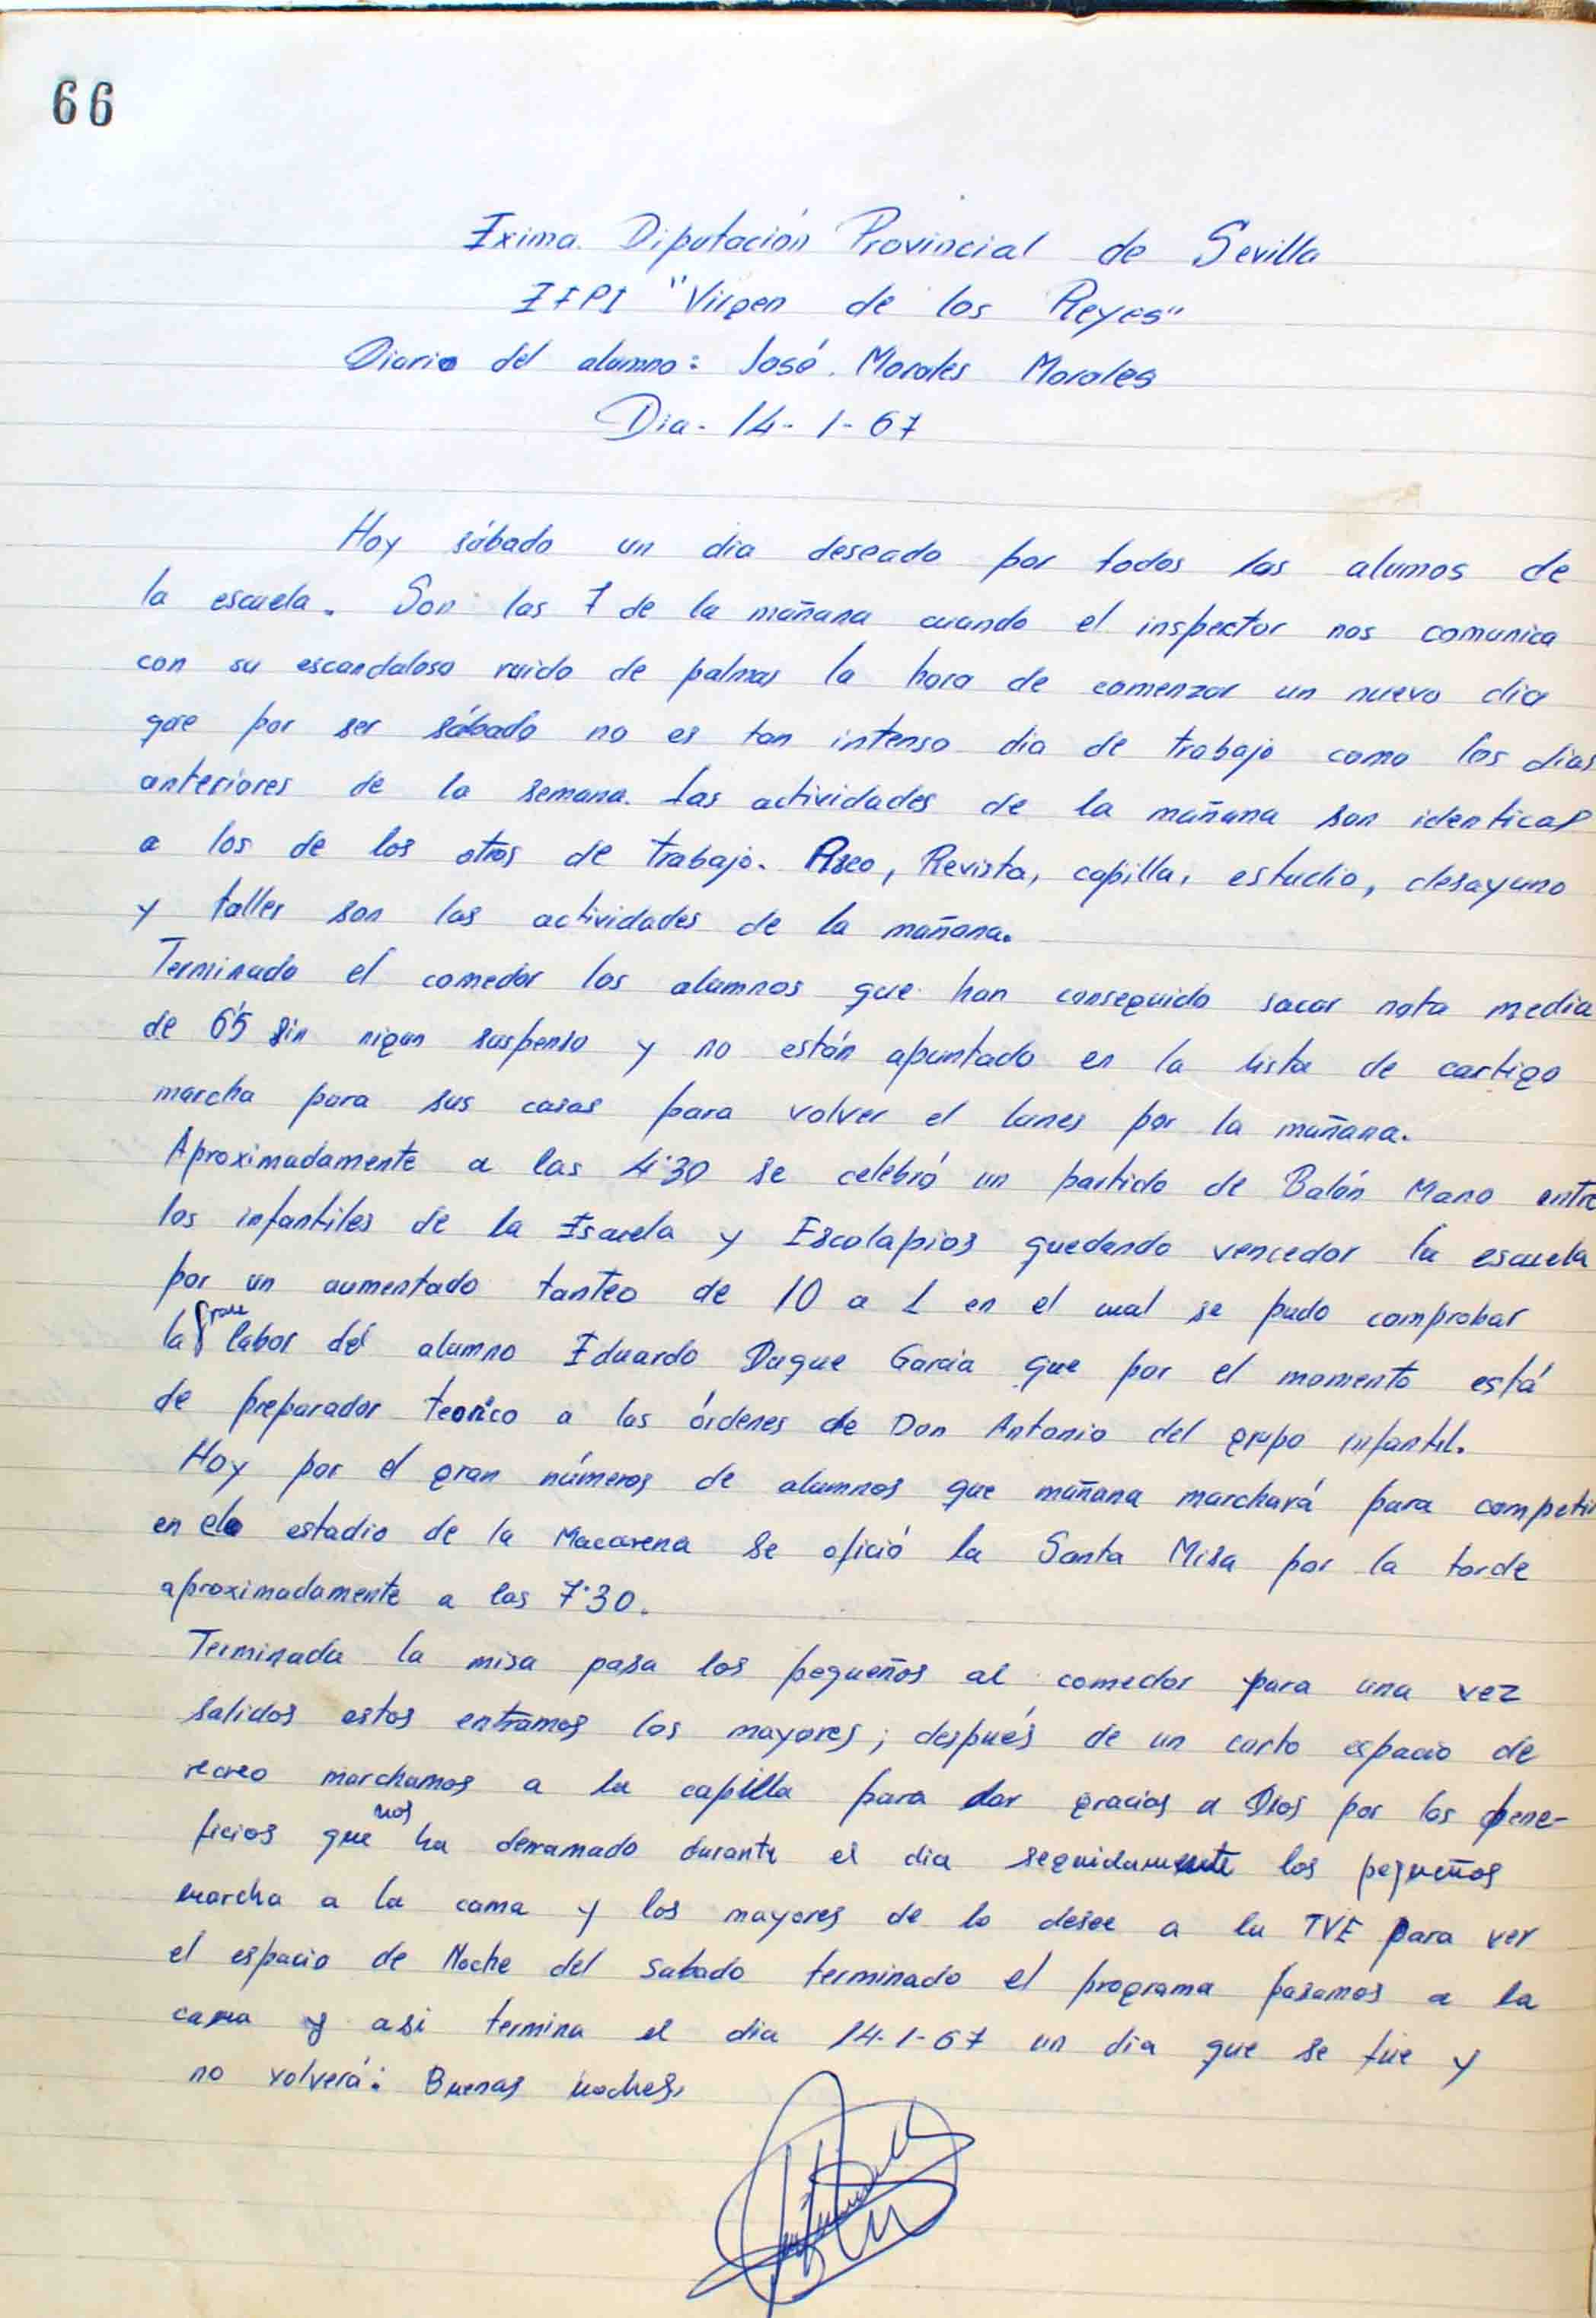 66
Exima. Diputación Provincial de Sevilla
EFPI "Virgen de los Reyes"
Diario del alumno: José Morales Morales
Dia - 14 - 1 - 67
Hoy sábado un dia deseado por todos los alumos de
la escuela. Son las 7 de la mañana cuando el inspector nos comunica
con su escandaloso ruido de palmas la hora de comenzar un nuevo dia
que por ser sábado no es tan intenso dia de trabajo como los dias
anteriores de la semana. Las actividades de la mañana son identicas
a los de los otros de trabajo. Aseo, Revista, capilla, estudio, desayuno
y taller son las actividades de la mañana.
Terminado el comedor los alumnos que han conseguido sacar nota media
de 6'5 sin nigun suspenso y no están apuntado en la lista de castigo
marcha para sus casas para volver el lunes por la mañana.
Aproximadamente a las 4'30 se celebró un partido de Balón Mano entre
los infantiles de la Escuela y Escolapios quedando vencedor la escuela
por un aumentado tanteo de 10 a 1 en el cual se pudo comprobar
la gran labor del alumno Eduardo Duque Garcia que por el momento está
de preparador teorico a las órdenes de Don Antonio del grupo infantil.
Hoy por el gran números de alumnos que mañana marchará para competir
en el estadio de la Macarena se ofició la Santa Misa por la tarde
aproximadamente a las 7'30.
Terminada la misa pasa los pequeños al comedor para una vez
salidos estos entramos los mayores; después de un corto espacio de
recreo marchamos a la capilla para dar gracias a Dios por los bene-
ficios que nos ha derramado durante el dia seguidamente los pequeños
marcha a la cama y los mayores de lo desee a la TVE para ver
el espacio de Noche del Sabado terminado el programa pasamos a la
cama y asi termina el dia 14-1-67 un dia que se fue y
no volverá: Buenas noches.